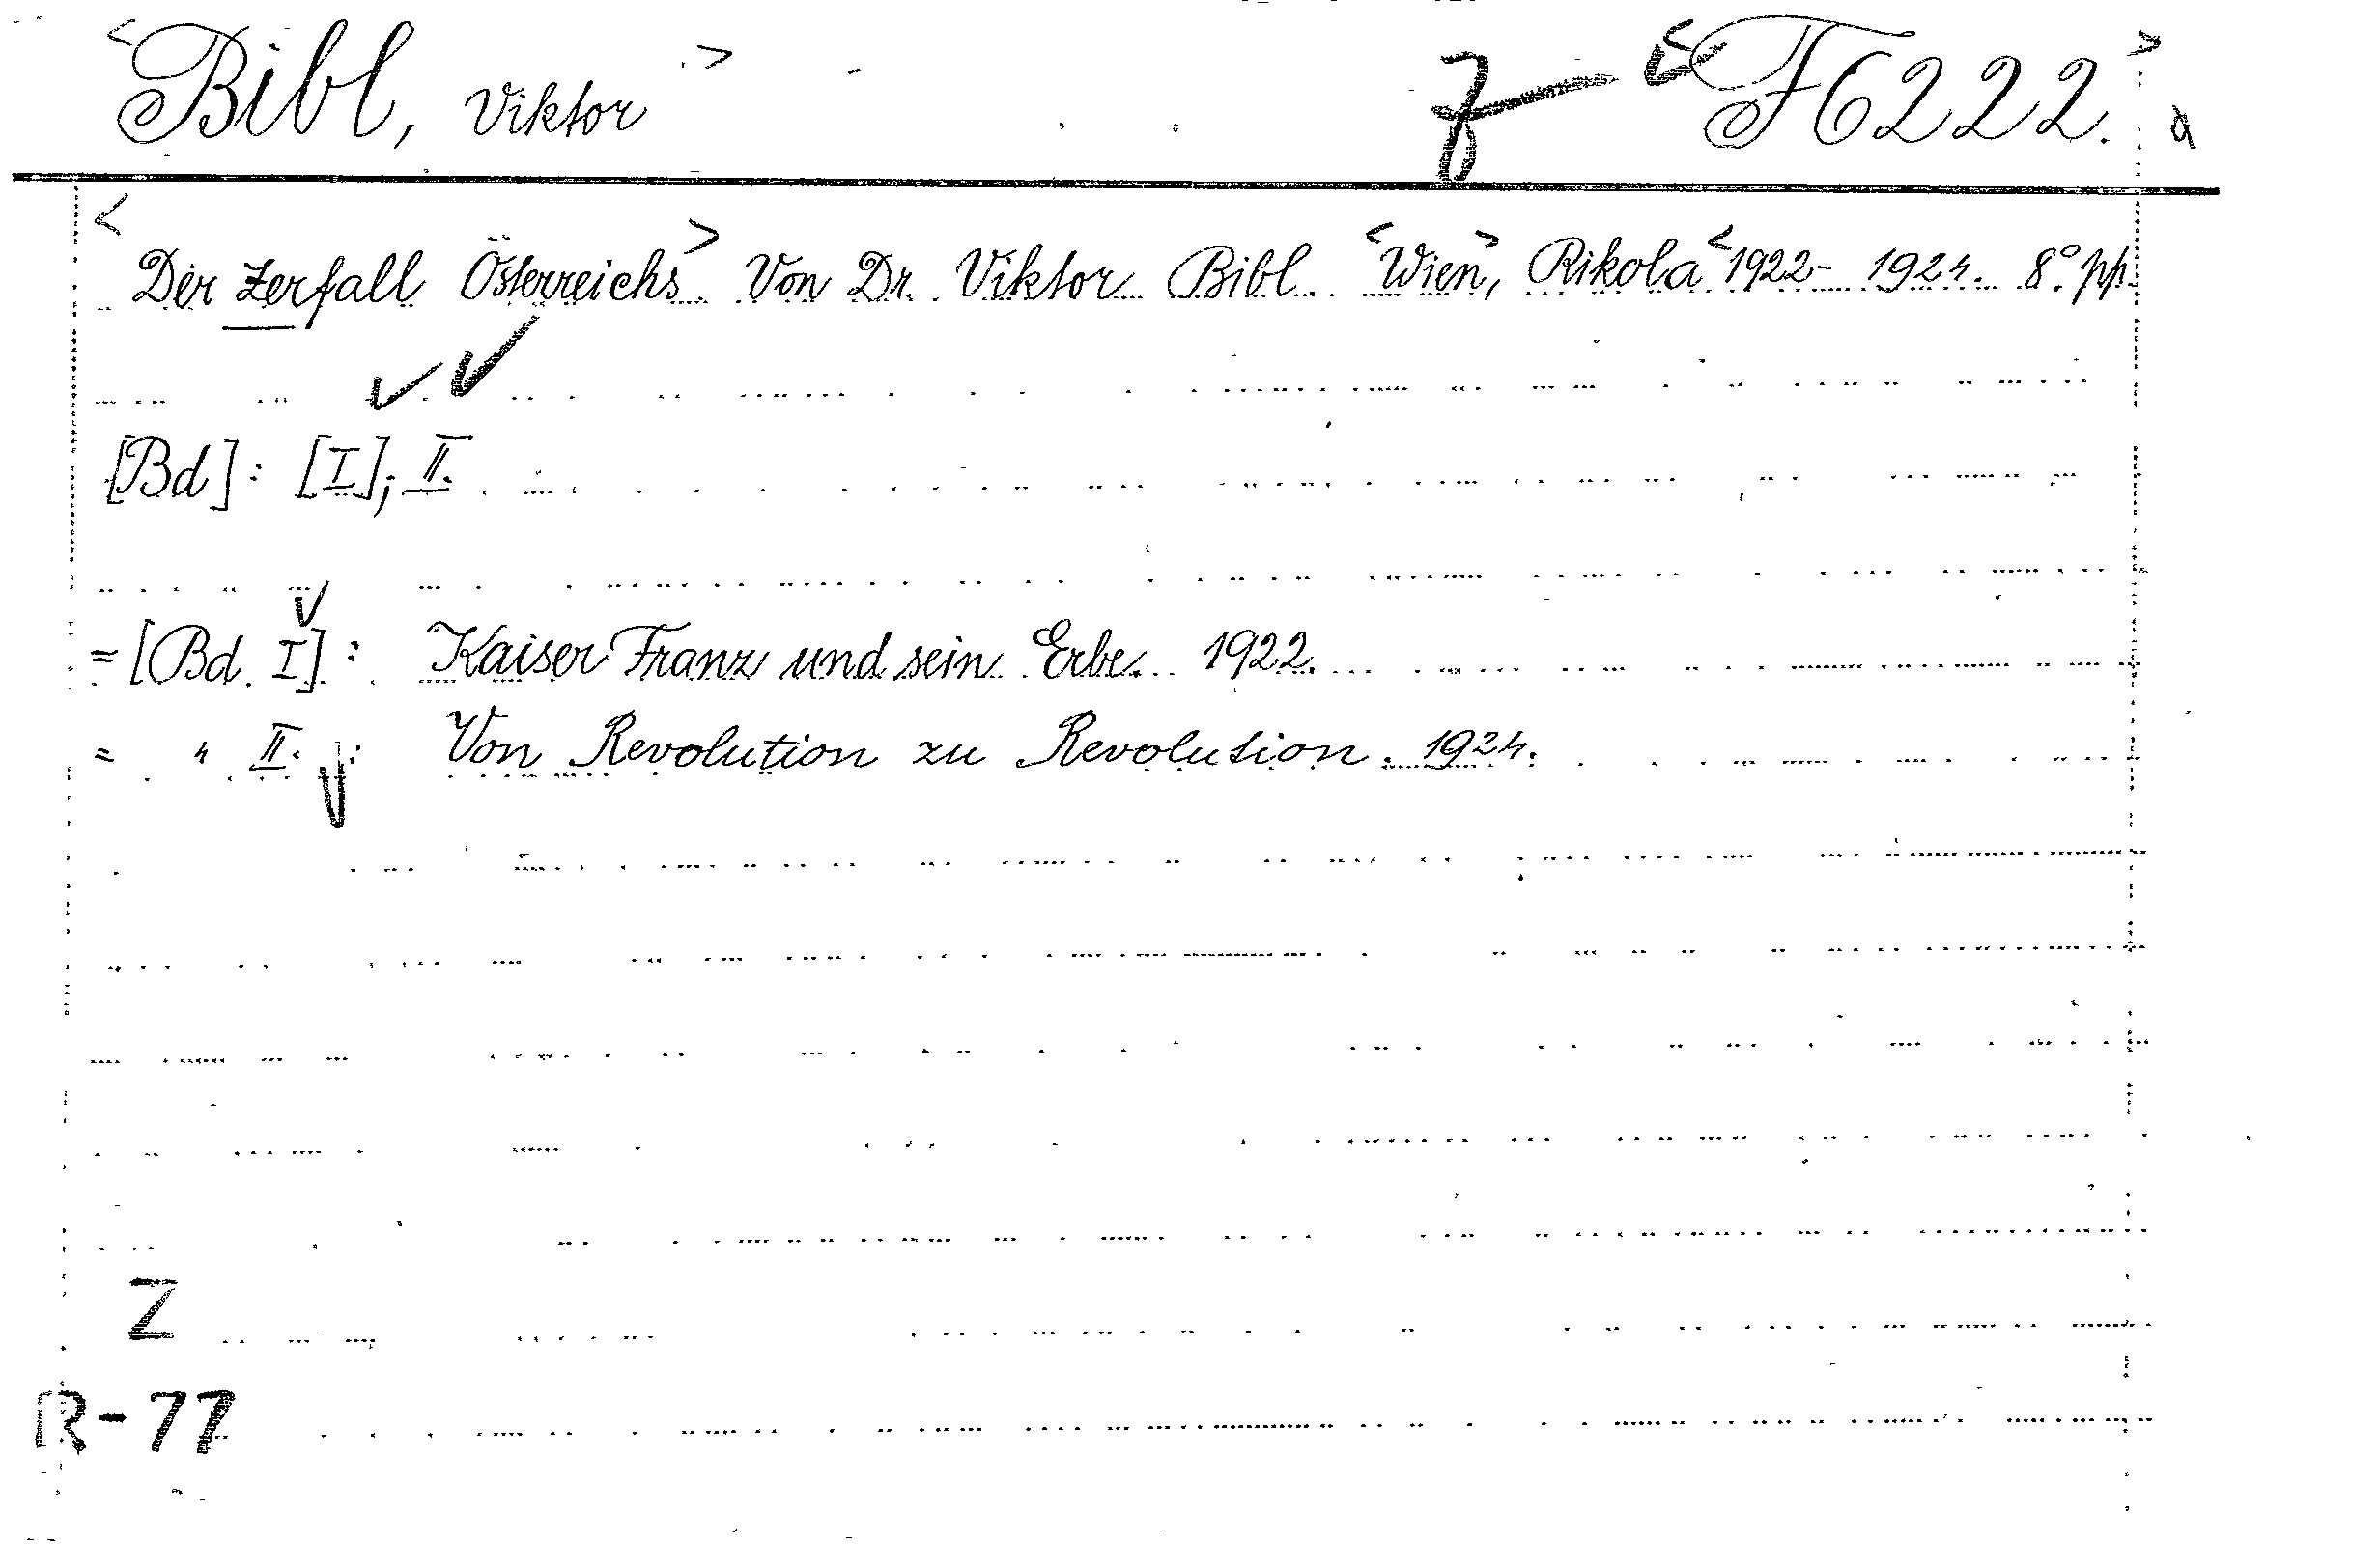 <Bibl, Viktor> <F6222.>
<Der Zerfall Österreichs> Von Dr. Viktor Bibl. <Wien>, Rikola <1922-1924. 8° pp.
[Bd]: [I]; II.
=[Bd. I]: Kaiser Franz und sein Erbe. 1922.
= " II. : Von Revolution zu Revolution. 1924.
Z
R-77